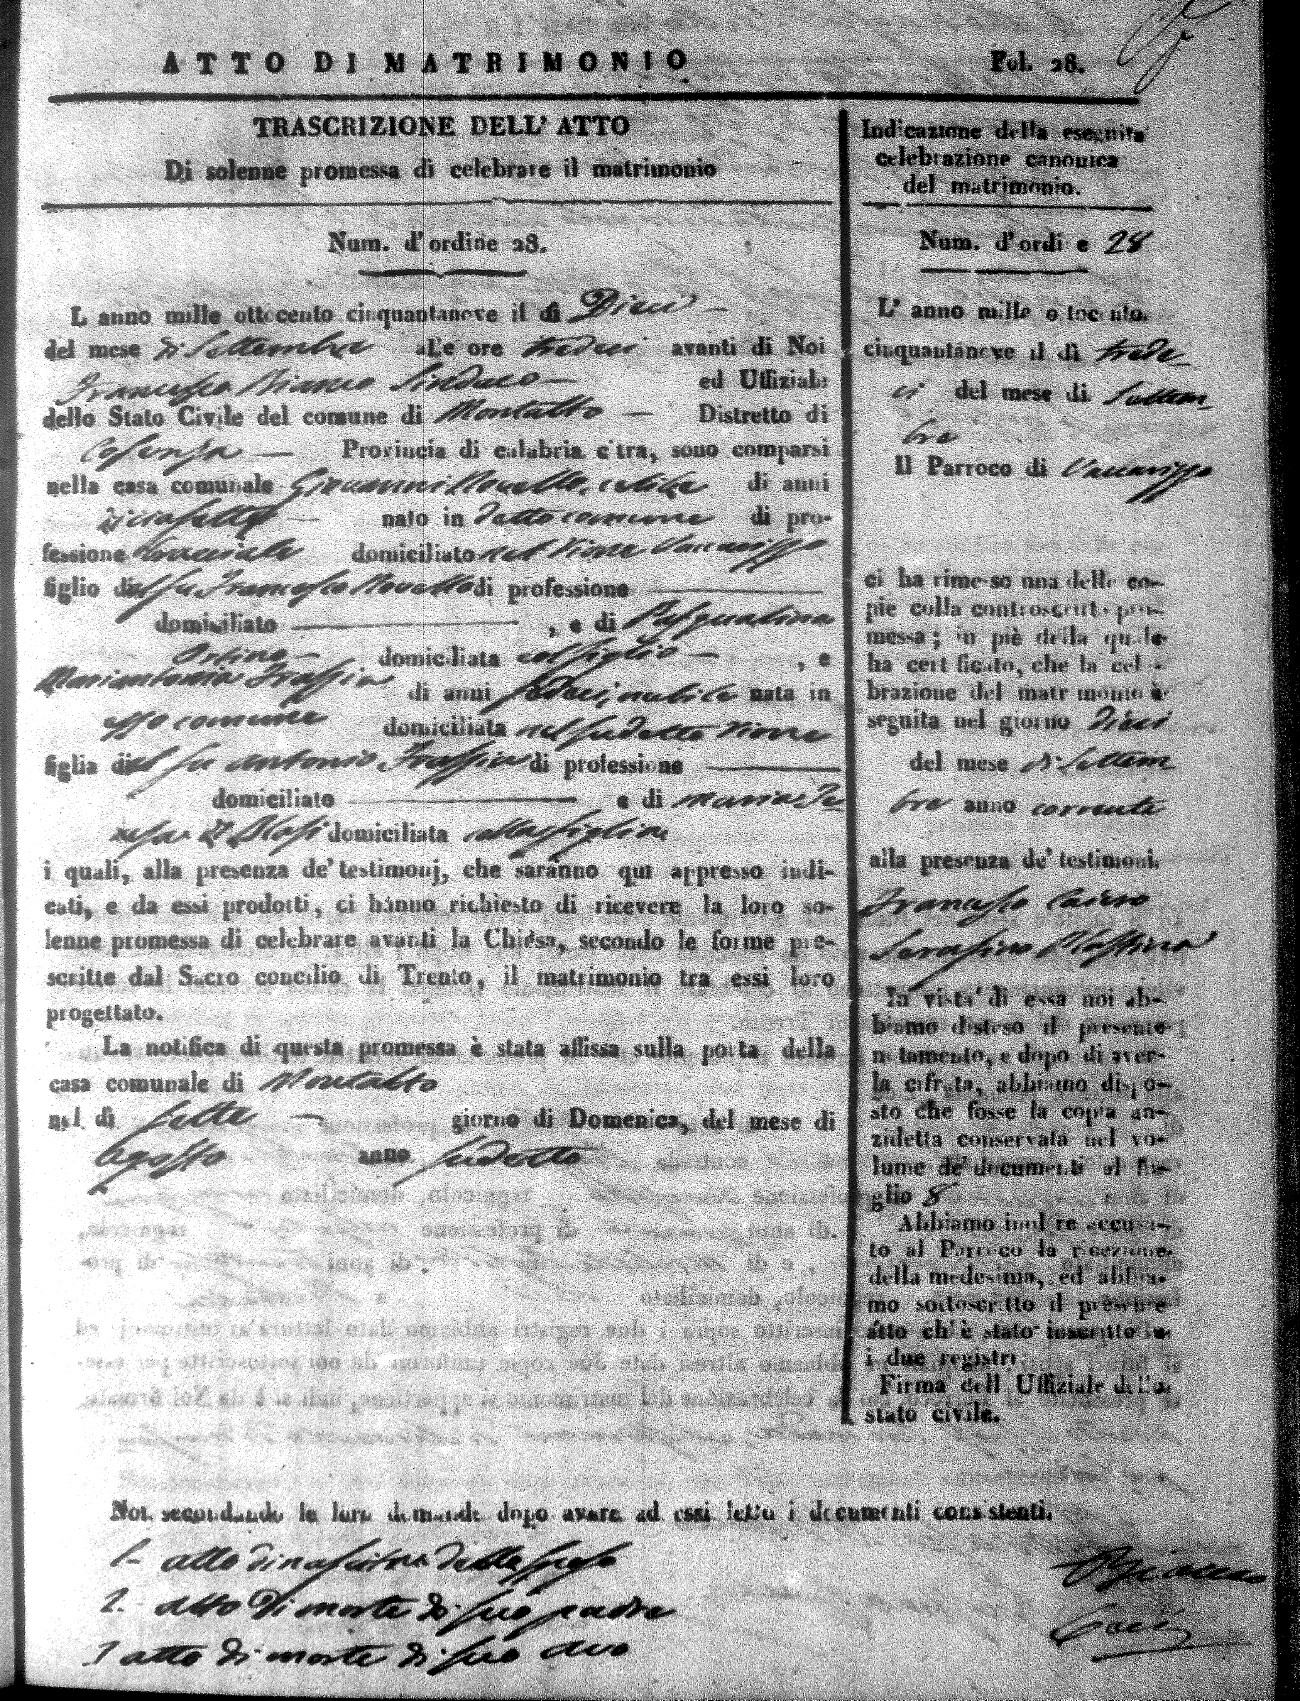 ATTO DI MATRIMONIO
Fol. 28.
TRASCRIZIONE DELL' ATTO
Di solenne promessa di celebrare il matrimonio
Num. d'ordine 28.
L anno mille ottocento cinquantanove il dì Dieci
del mese di Settembre alle ore tredici avanti di Noi
Francesco Bianco Sindaco ed Uffiziale
dello Stato Civile del comune di Montalto Distretto di
Cosenza Provincia di calabria citra, sono comparsi
nella casa comunale Giovanni Novello, celibe di anni
nato in detto comune di pro-
fessione domiciliato nel Rione Vaccarizzo
figlio del fu Francesco Novello di professione
domiciliato , e di Pasqualina
Orsino domiciliata col figlio , e
Mariantonia Frassia di anni sedeci, nubile nata in
esso comune domiciliata nel sudetto Rione
figlia del fu Antonio Frassia di professione
domiciliato e di Maria Te
resa Di Blasi domiciliata colla figlia
i quali, alla presenza de' testimonj, che saranno qui appresso indi-
cati, e da essi prodotti, ci hanno richiesto di ricevere la loro so-
lenne promessa di celebrare avanti la Chiesa, secondo le forme pre-
scritte dal Sacro concilio di Trento, il matrimonio tra essi loro
progettato.
La notifica di questa promessa è stata affissa sulla porta della
casa comunale di Montalto
nel dì sette giorno di Domenica, del mese di
Agosto anno sudetto
Noi secondando le loro demande dopo avere ad essi letto i documenti consistenti.
1- atto di nascita della sposa
2. atto di morte di suo padre
3 atto di morte di suo avo
Indicazione della eseguita
celebrazione canonica
del matrimonio.
Num. d'ordi e 28
L' anno mille ottocento
cinquantanove il dì trede
ci del mese di Settem
bre
Il Parroco di Vaccarizzo
ci ha rimesso una delle co-
pie colla controscritta pro-
messa; in piè della quale
ha certificato, che la cele-
brazione del matrimonio è
seguita nel giorno Dieci
del mese di Settem
bre anno corrente
alla presenza de' testimoni.
Francesco Cairo
Serafino
In vista di essa noi ab-
biamo disteso il presente
notamento, e dopo di aver-
la cifrata, abbiamo dispo-
sto che fosse la copia an-
zidetta conservata nel vo-
lume de' documenti al fo-
glio 8
Abbiamo inoltre accusa-
to al Parroco la ricezione
della medesima, ed abbia-
mo sottoscritto il presente
atto ch' è stato inscritto su
i due registri
Firma dell Uffiziale dello
stato civile.